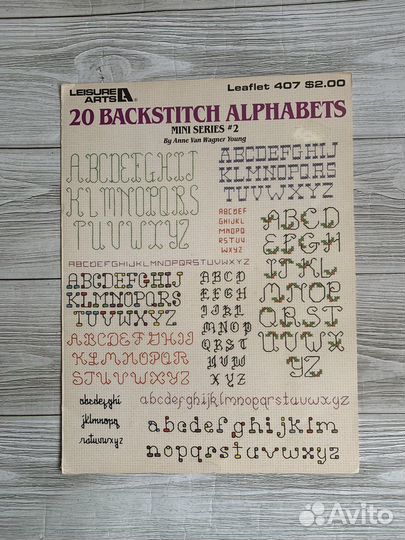 LEISURE ARTS
Leaflet 407 $2.00
20 BACKSTITCH ALPHABETS
MINI SERIES #2
By Anne Van Wagner Young
ABCDEFGHIJ
KLMNOPQRS
TUVWXYZ
ABCDEFGHIJ
KLMNOPQRS
TUVWXYZ
ABCDEF
GHIJKL
MNOPQ
RSTUV
WXYZ
ABCD
EFGH
IJKL
MNOP
QRST
UVWX
YZ
ABCDEFGHIJKLMNOPQRSTUVWXYZ
ABCDEFGHIJ
KLMNOPQRS
TUVWXYZ
ABCD
EFGH
IJKL
MNOP
QRST
UVW
XYZ
ABCDEFGHI
JKLMNOPQR
STUVWXYZ
abcdefghi
jklmnopq
rstuvwxyz
abcdefghijklmnopqrstuvwxyz
abcdefghijklm
nopqrstuvwxyz
Avito